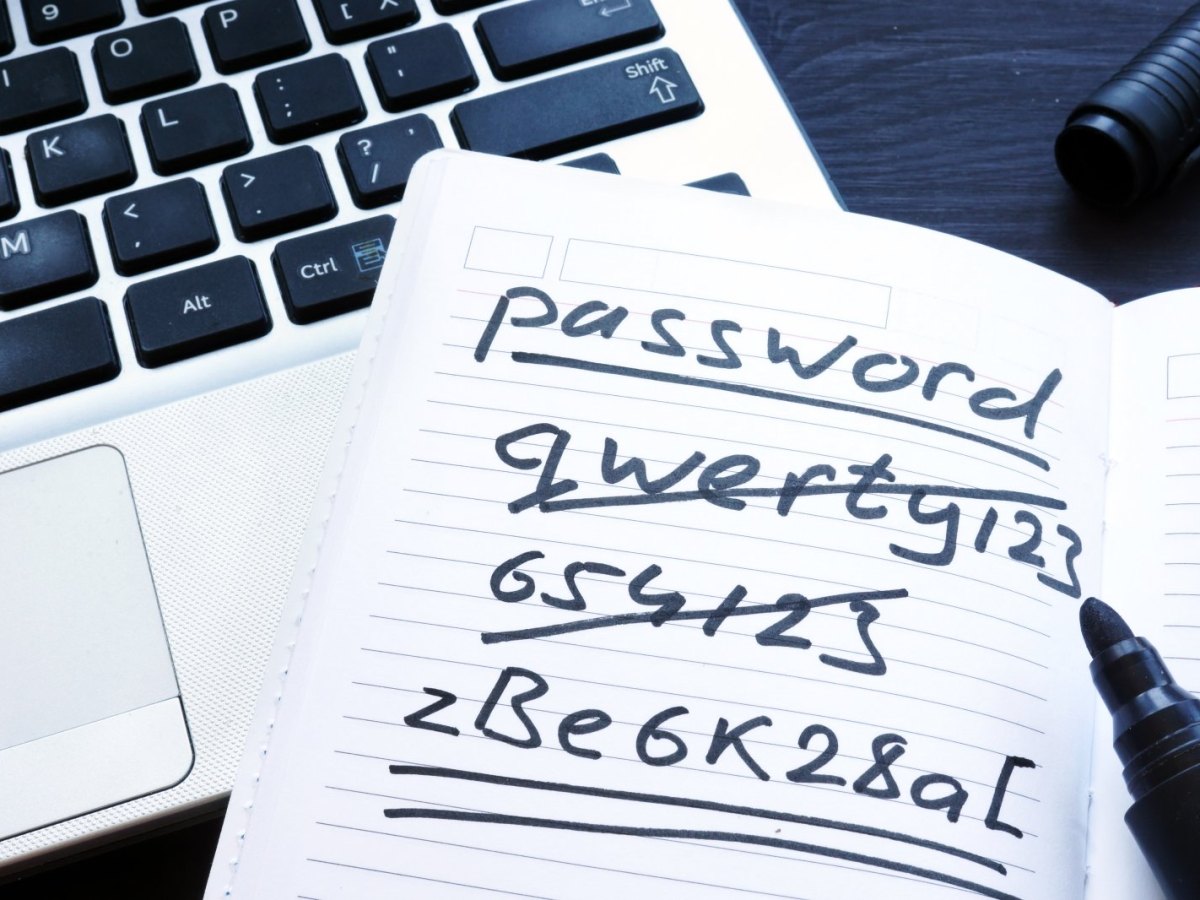 9 P [ X Enter
I O " Shift
K L ; :
M < , > . ? / '
Alt Ctrl
password
qwerty123
654123
zBe6K28a[